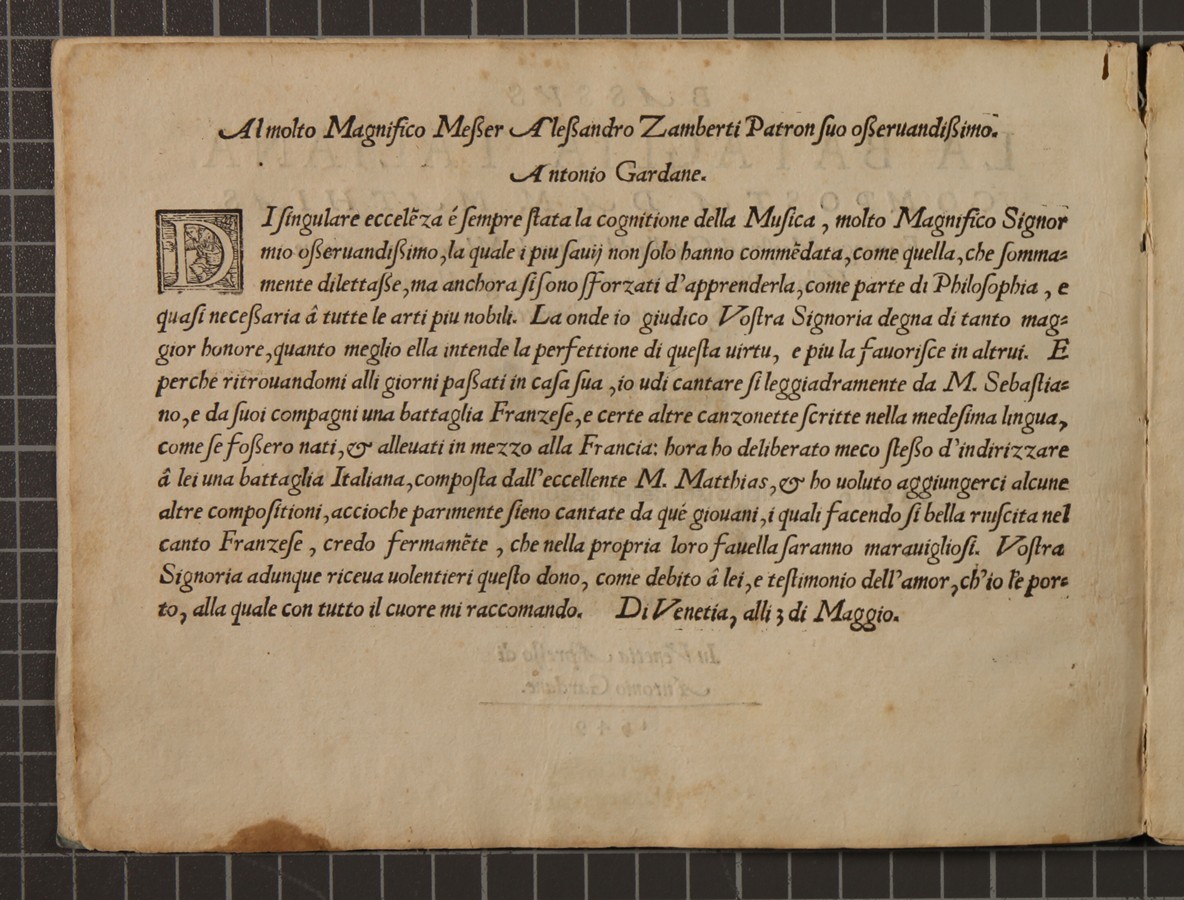 Al molto Magnifico Meßer Aleßandro Zamberti Patron ſuo oßeruandißimo.
Antonio Gardane.
DI ſingulare eccelẽza é ſempre ſtata la cognitione della Muſica, molto Magnifico Signor
mio oßeruandißimo, la quale i piu ſauij non ſolo hanno commẽdata, come quella, che ſomma=
mente dilettaſſe, ma anchora ſi ſono sforzati d'apprenderla, come parte di Philoſophia, e
quaſi neceßaria â tutte le arti piu nobili. La onde io giudico Voſtra Signoria degna di tanto mag=
gior honore, quanto meglio ella intende la perfettione di queſta uirtu, e piu la fauoriſce in altrui. E
perche ritrouandomi alli giorni paßati in caſa ſua, io udi cantare ſi leggiadramente da M. Sebaſtia=
no, e da ſuoi compagni una battaglia Franzeſe, e certe altre canzonette ſcritte nella medeſima lingua,
come ſe foßero nati, & alleuati in mezzo alla Francia: hora ho deliberato meco ſteßo d'indirizzare
â lei una battaglia Italiana, compoſta dall'eccellente M. Matthias, & ho uoluto aggiungerci alcune
altre compoſitioni, accioche parimente ſieno cantate da qué giouani, i quali facendo ſi bella riuſcita nel
canto Franzeſe, credo fermamẽte, che nella propria loro fauella ſaranno marauiglioſi. Voſtra
Signoria adunque riceua uolentieri queſto dono, come debito â lei, e teſtimonio dell'amor, ch'io le por=
to, alla quale con tutto il cuore mi raccomando. Di Venetia, alli 3 di Maggio.